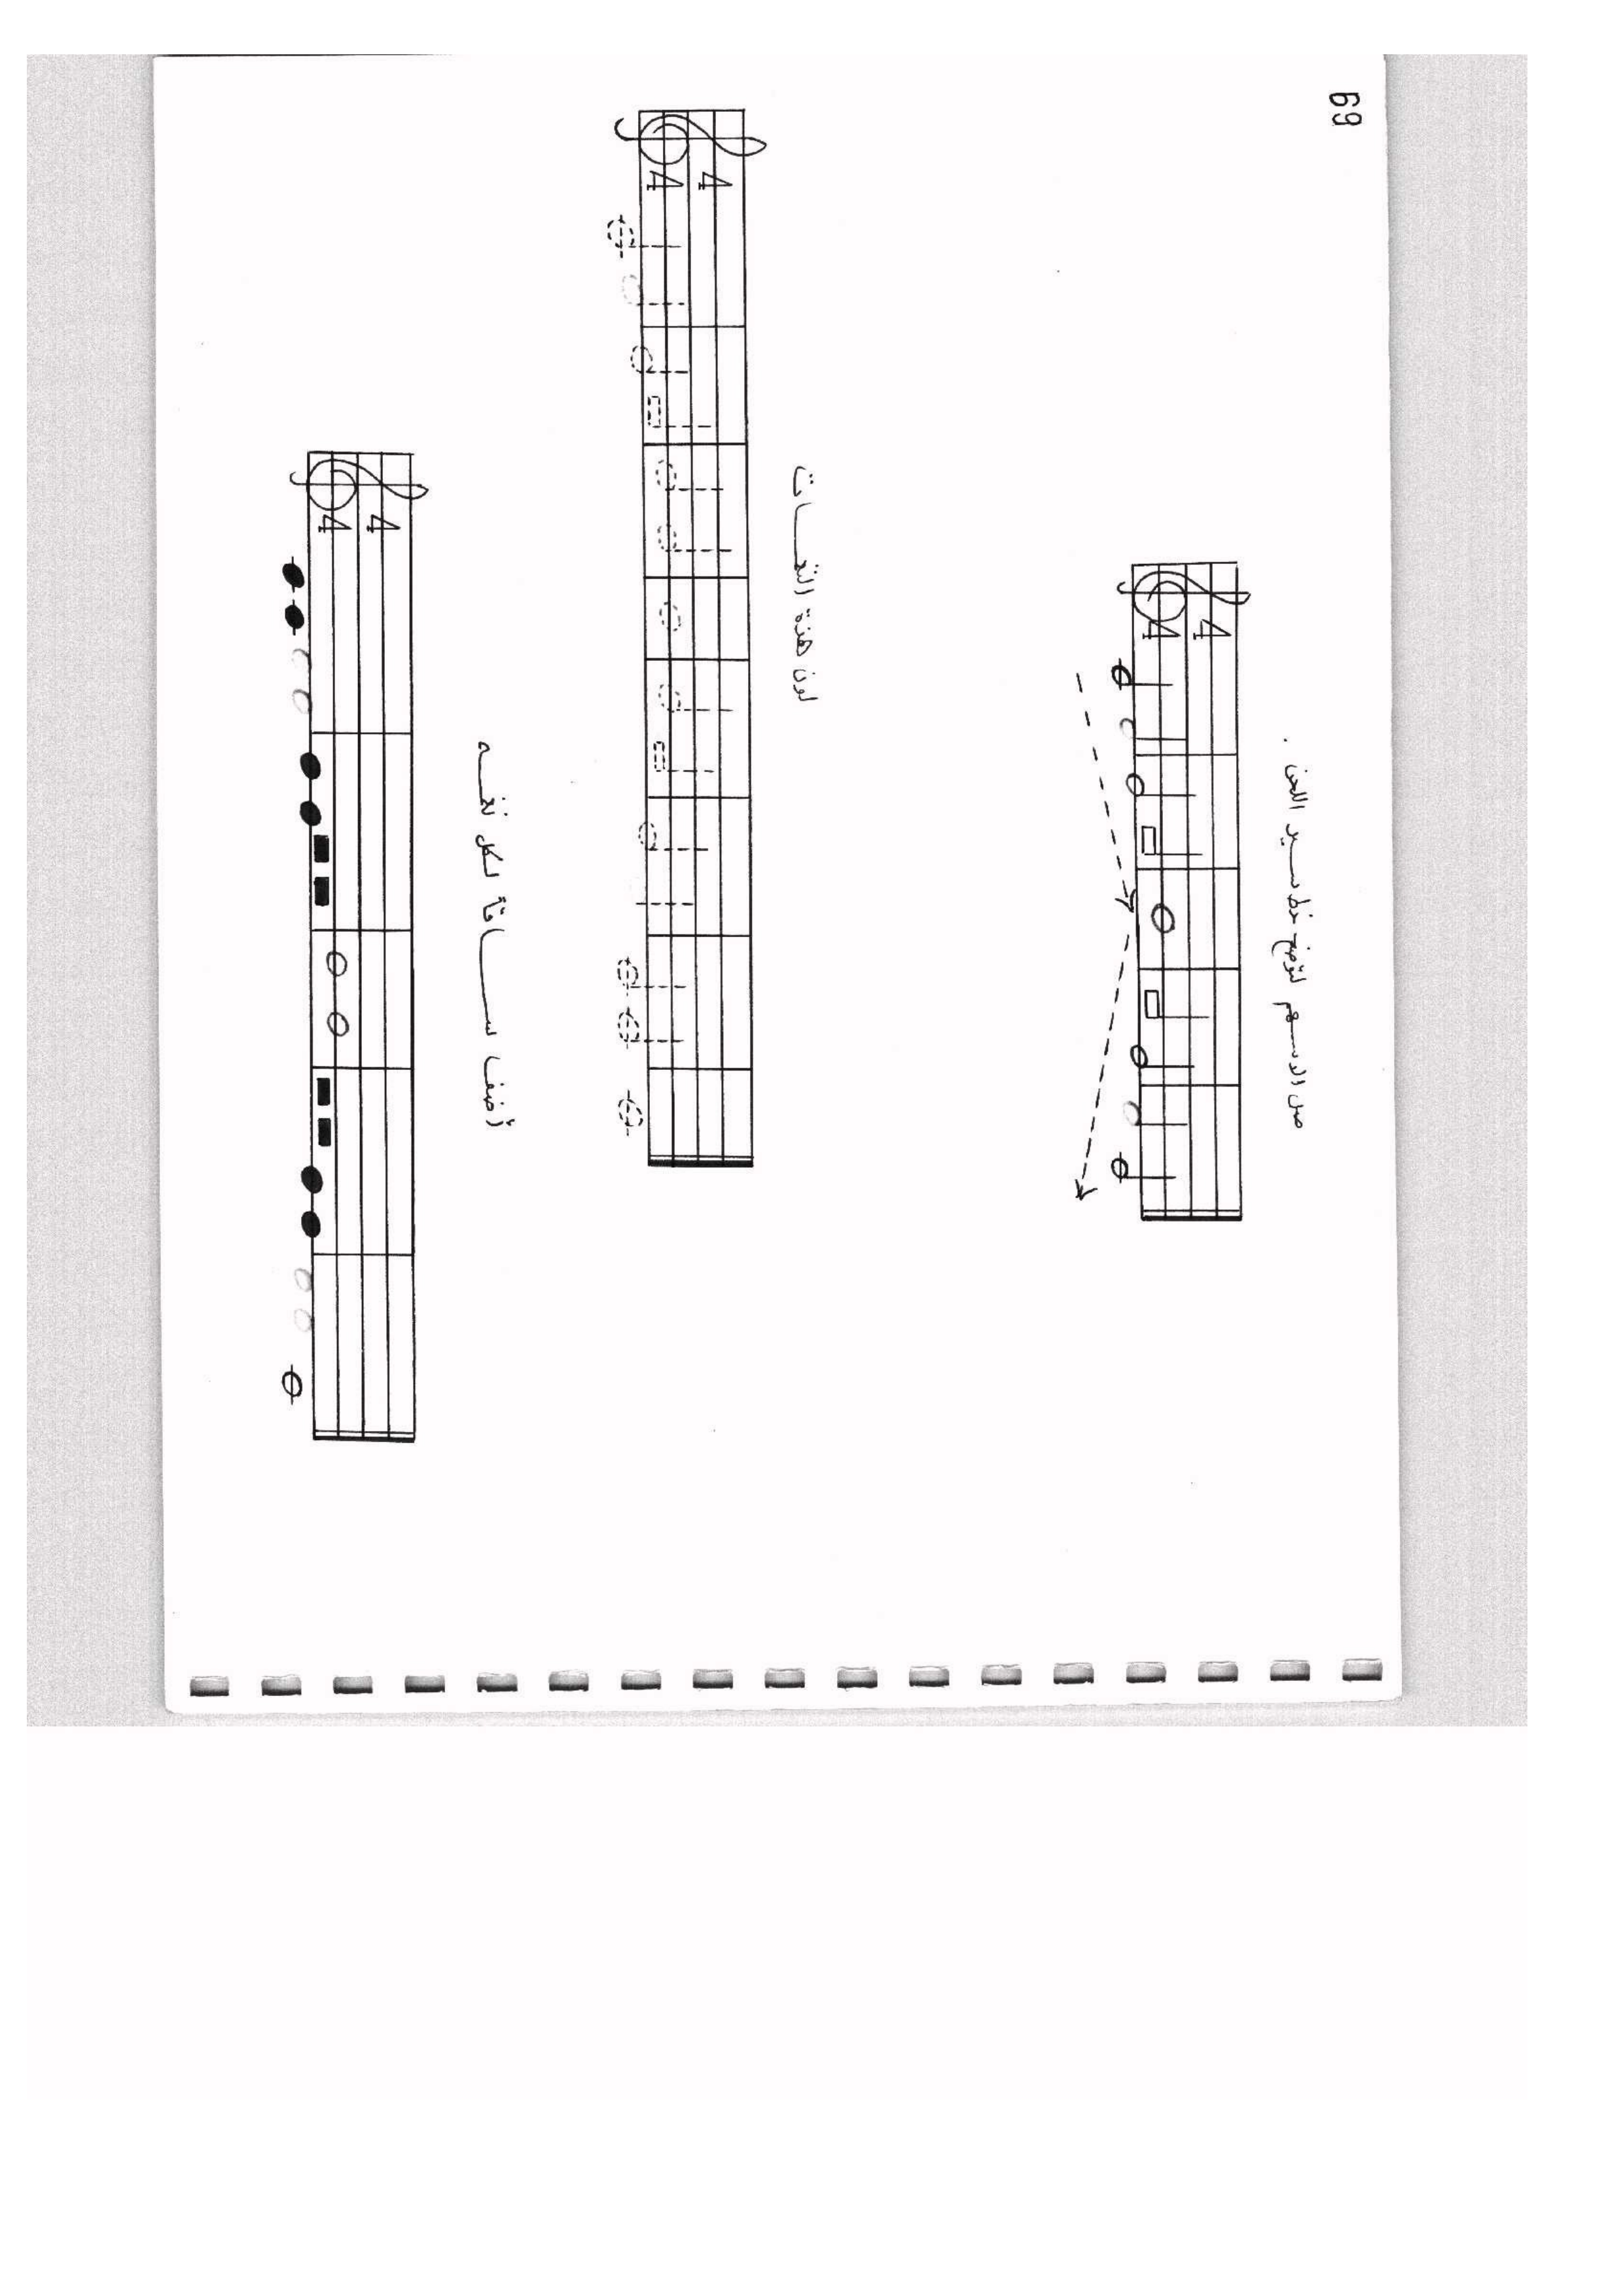 69
صل الاسهم لتوضح خط سير اللحن .
4
4
لون هذة النغمات
4
4
أضف ساقاً لكل نغمه
4
4